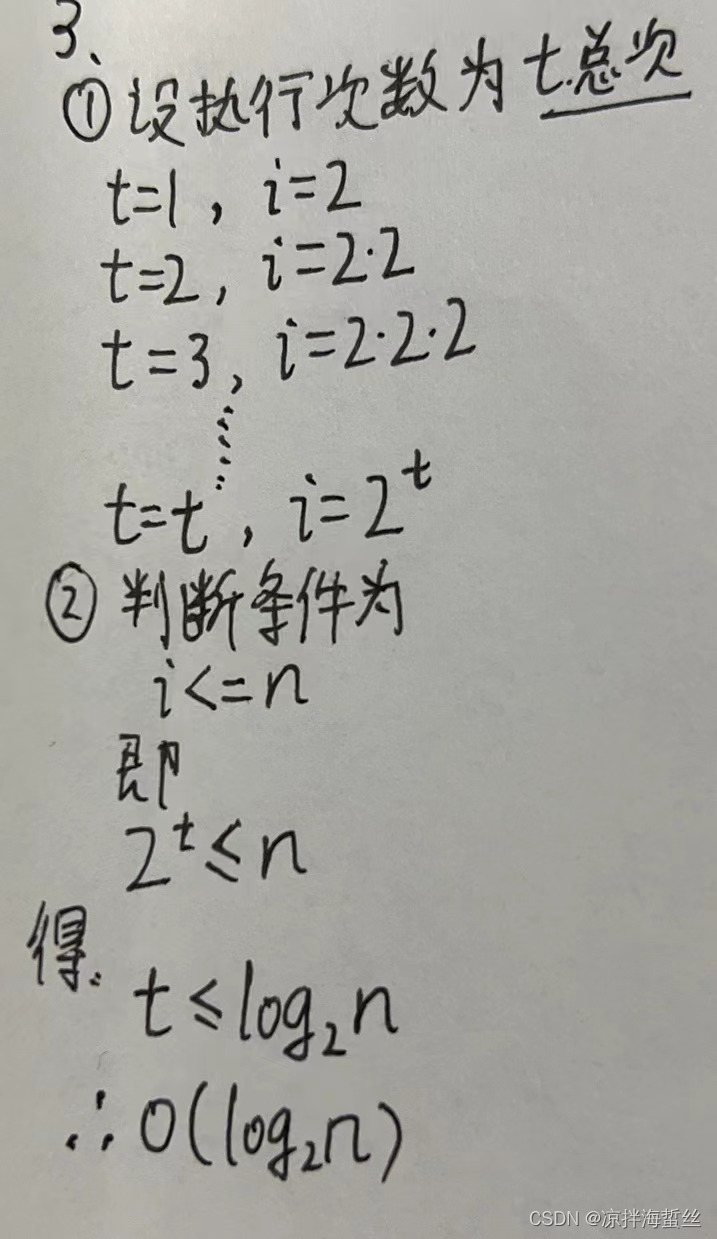 3、
① 设执行次数为 t.总次
t=1, i=2
t=2, i=2·2
t=3, i=2·2·2
⋮
t=t, i=2^t
② 判断条件为
i<=n
即
2^t≤n
得:
t≤log₂n
∴O(log₂n)
CSDN @凉拌海蜇丝